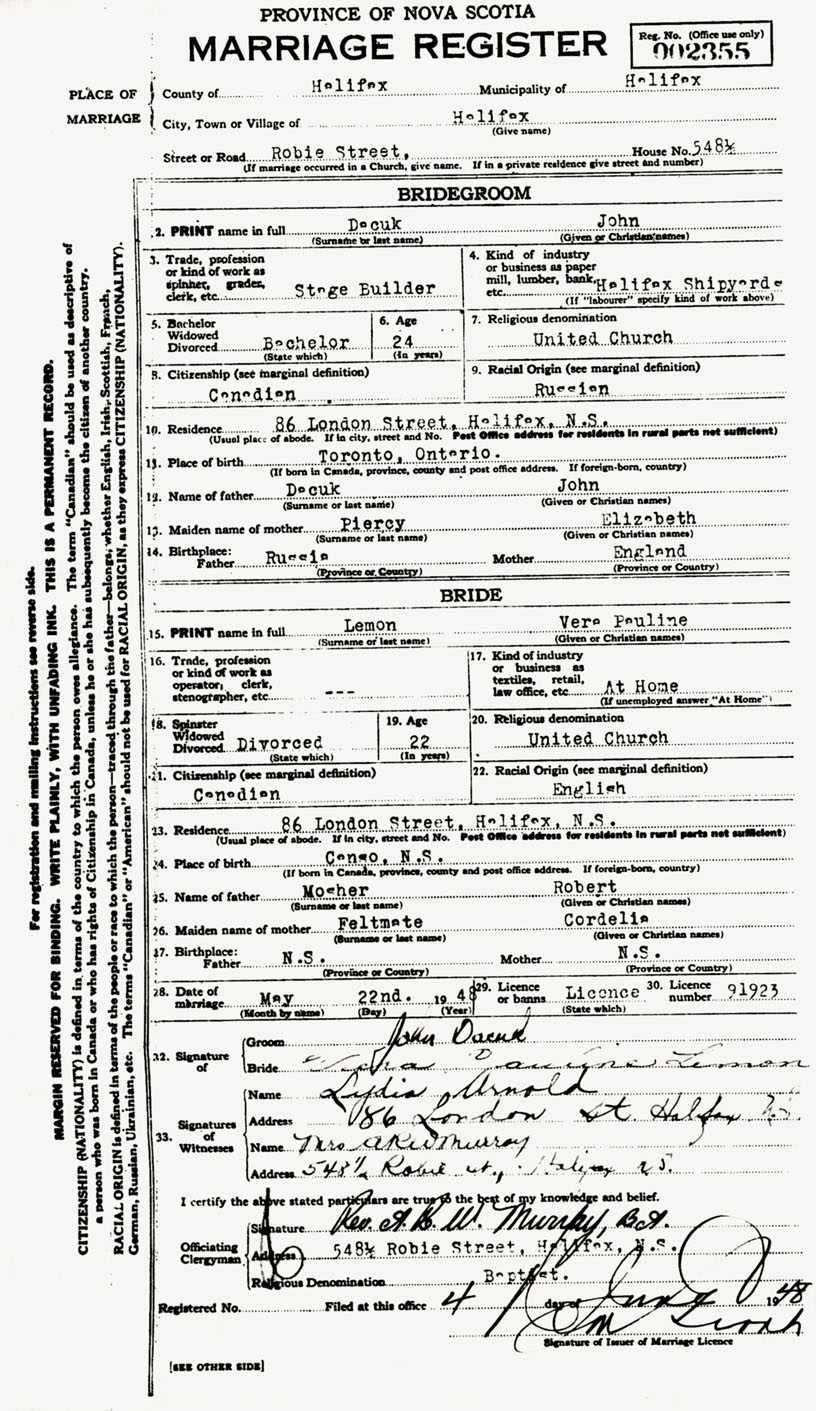 PROVINCE OF NOVA SCOTIA
MARRIAGE REGISTER
Reg. No. (Office use only)
002355
PLACE OF MARRIAGE
County of Halifax Municipality of Halifax
City, Town or Village of Halifax
(Give name)
Street or Road Robie Street, House No. 548½
(If marriage occurred in a Church, give name. If in a private residence give street and number)
BRIDEGROOM
2. PRINT name in full Dacuk John
(Surname or last name) (Given or Christian names)
3. Trade, profession or kind of work as spinner, grader, clerk, etc. Stage Builder
4. Kind of industry or business as paper mill, lumber, bank, etc. Halifax Shipyards
(If "labourer" specify kind of work above)
5. Bachelor Widowed Divorced Bachelor
(State which)
6. Age 24
(In years)
7. Religious denomination
United Church
8. Citizenship (see marginal definition)
Canadian
9. Racial Origin (see marginal definition)
Russian
10. Residence 86 London Street, Halifax, N.S.
(Usual place of abode. If in city, street and No. Post Office address for residents in rural parts not sufficient)
11. Place of birth Toronto, Ontario.
(If born in Canada, province, county and post office address. If foreign-born, country)
12. Name of father Dacuk John
(Surname or last name) (Given or Christian names)
13. Maiden name of mother Piercy Elizabeth
(Surname or last name) (Given or Christian names)
14. Birthplace: Father Russia Mother England
(Province or Country) (Province or Country)
BRIDE
15. PRINT name in full Lemon Vera Pauline
(Surname or last name) (Given or Christian names)
16. Trade, profession or kind of work as operator, clerk, stenographer, etc ---
17. Kind of industry or business as textiles, retail, law office, etc. At Home
(If unemployed answer "At Home")
18. Spinster Widowed Divorced Divorced
(State which)
19. Age 22
(In years)
20. Religious denomination
United Church
21. Citizenship (see marginal definition)
Canadian
22. Racial Origin (see marginal definition)
English
23. Residence 86 London Street, Halifax, N.S.
(Usual place of abode. If in city, street and No. Post Office address for residents in rural parts not sufficient)
24. Place of birth Canso, N.S.
(If born in Canada, province, county and post office address. If foreign-born, country)
25. Name of father Mosher Robert
(Surname or last name) (Given or Christian names)
26. Maiden name of mother Feltmate Cordelia
(Surname or last name) (Given or Christian names)
27. Birthplace: Father N.S. Mother N.S.
(Province or Country) (Province or Country)
28. Date of marriage May 22nd. 1948
(Month by name) (Day) (Year)
29. Licence or banns Licence
(State which)
30. Licence number 91923
32. Signature of
Groom John Dacuk
Bride Vera Pauline Lemon
33. Signatures of Witnesses
Name Lydia Arnold
Address 86 London St Halifax N.S.
Name Mrs A R W Murray
Address 548½ Robie St., Halifax N.S.
I certify the above stated particulars are true to the best of my knowledge and belief.
Officiating Clergyman
Signature Rev. A. R. W. Murray, B.A.
Address 548½ Robie Street, Halifax, N.S.
Religious Denomination Baptist.
Registered No. Filed at this office 4 day of June 1948
Signature of Issuer of Marriage Licence
[SEE OTHER SIDE]
For registration and mailing instructions see reverse side.
MARGIN RESERVED FOR BINDING. WRITE PLAINLY, WITH UNFADING INK. THIS IS A PERMANENT RECORD.
CITIZENSHIP (NATIONALITY) is defined in terms of the country to which the person owes allegiance. The term "Canadian" should be used as descriptive of
a person who was born in Canada or who has rights of Citizenship in Canada, unless he or she has subsequently become the citizen of another country.
RACIAL ORIGIN is defined in terms of the people or race to which the person—traced through the father—belongs; whether English, Irish, Scottish, French,
German, Russian, Ukrainian, etc. The terms "Canadian" or "American" should not be used for RACIAL ORIGIN, as they express CITIZENSHIP (NATIONALITY).